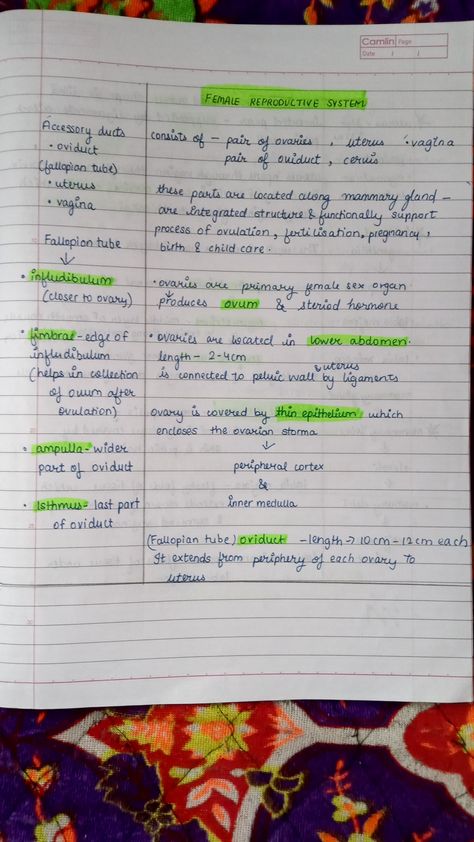 Camlin Page
Date / /
FEMALE REPRODUCTIVE SYSTEM
Accessory ducts
• oviduct
(fallopian tube)
• uterus
• vagina
Fallopian tube
↓
• infludibulum
(closer to ovary)
• fimbrae - edge of
infludibulum
(helps in collection
of ovum after
ovulation)
• ampulla - wider
part of oviduct
• Isthmus - last part
of oviduct
consists of - pair of ovaries , uterus • vagina
pair of oviduct , cervis
these parts are located along mammary gland -
are integrated structure & functionally support
process of ovulation, fertilisation, pregnancy,
birth & child care.
• ovaries are primary female sex organ
↓
produces ovum & steriod hormone
• ovaries are located in lower abdomen.
length - 2-4cm
is connected to pelvic wall & uterus by ligaments
ovary is covered by thin epithelium which
encloses the ovarian storma
↓
peripheral cortex
&
inner medulla
(Fallopian tube) oviduct - length → 10 cm - 12 cm each
It extends from periphery of each ovary to
uterus